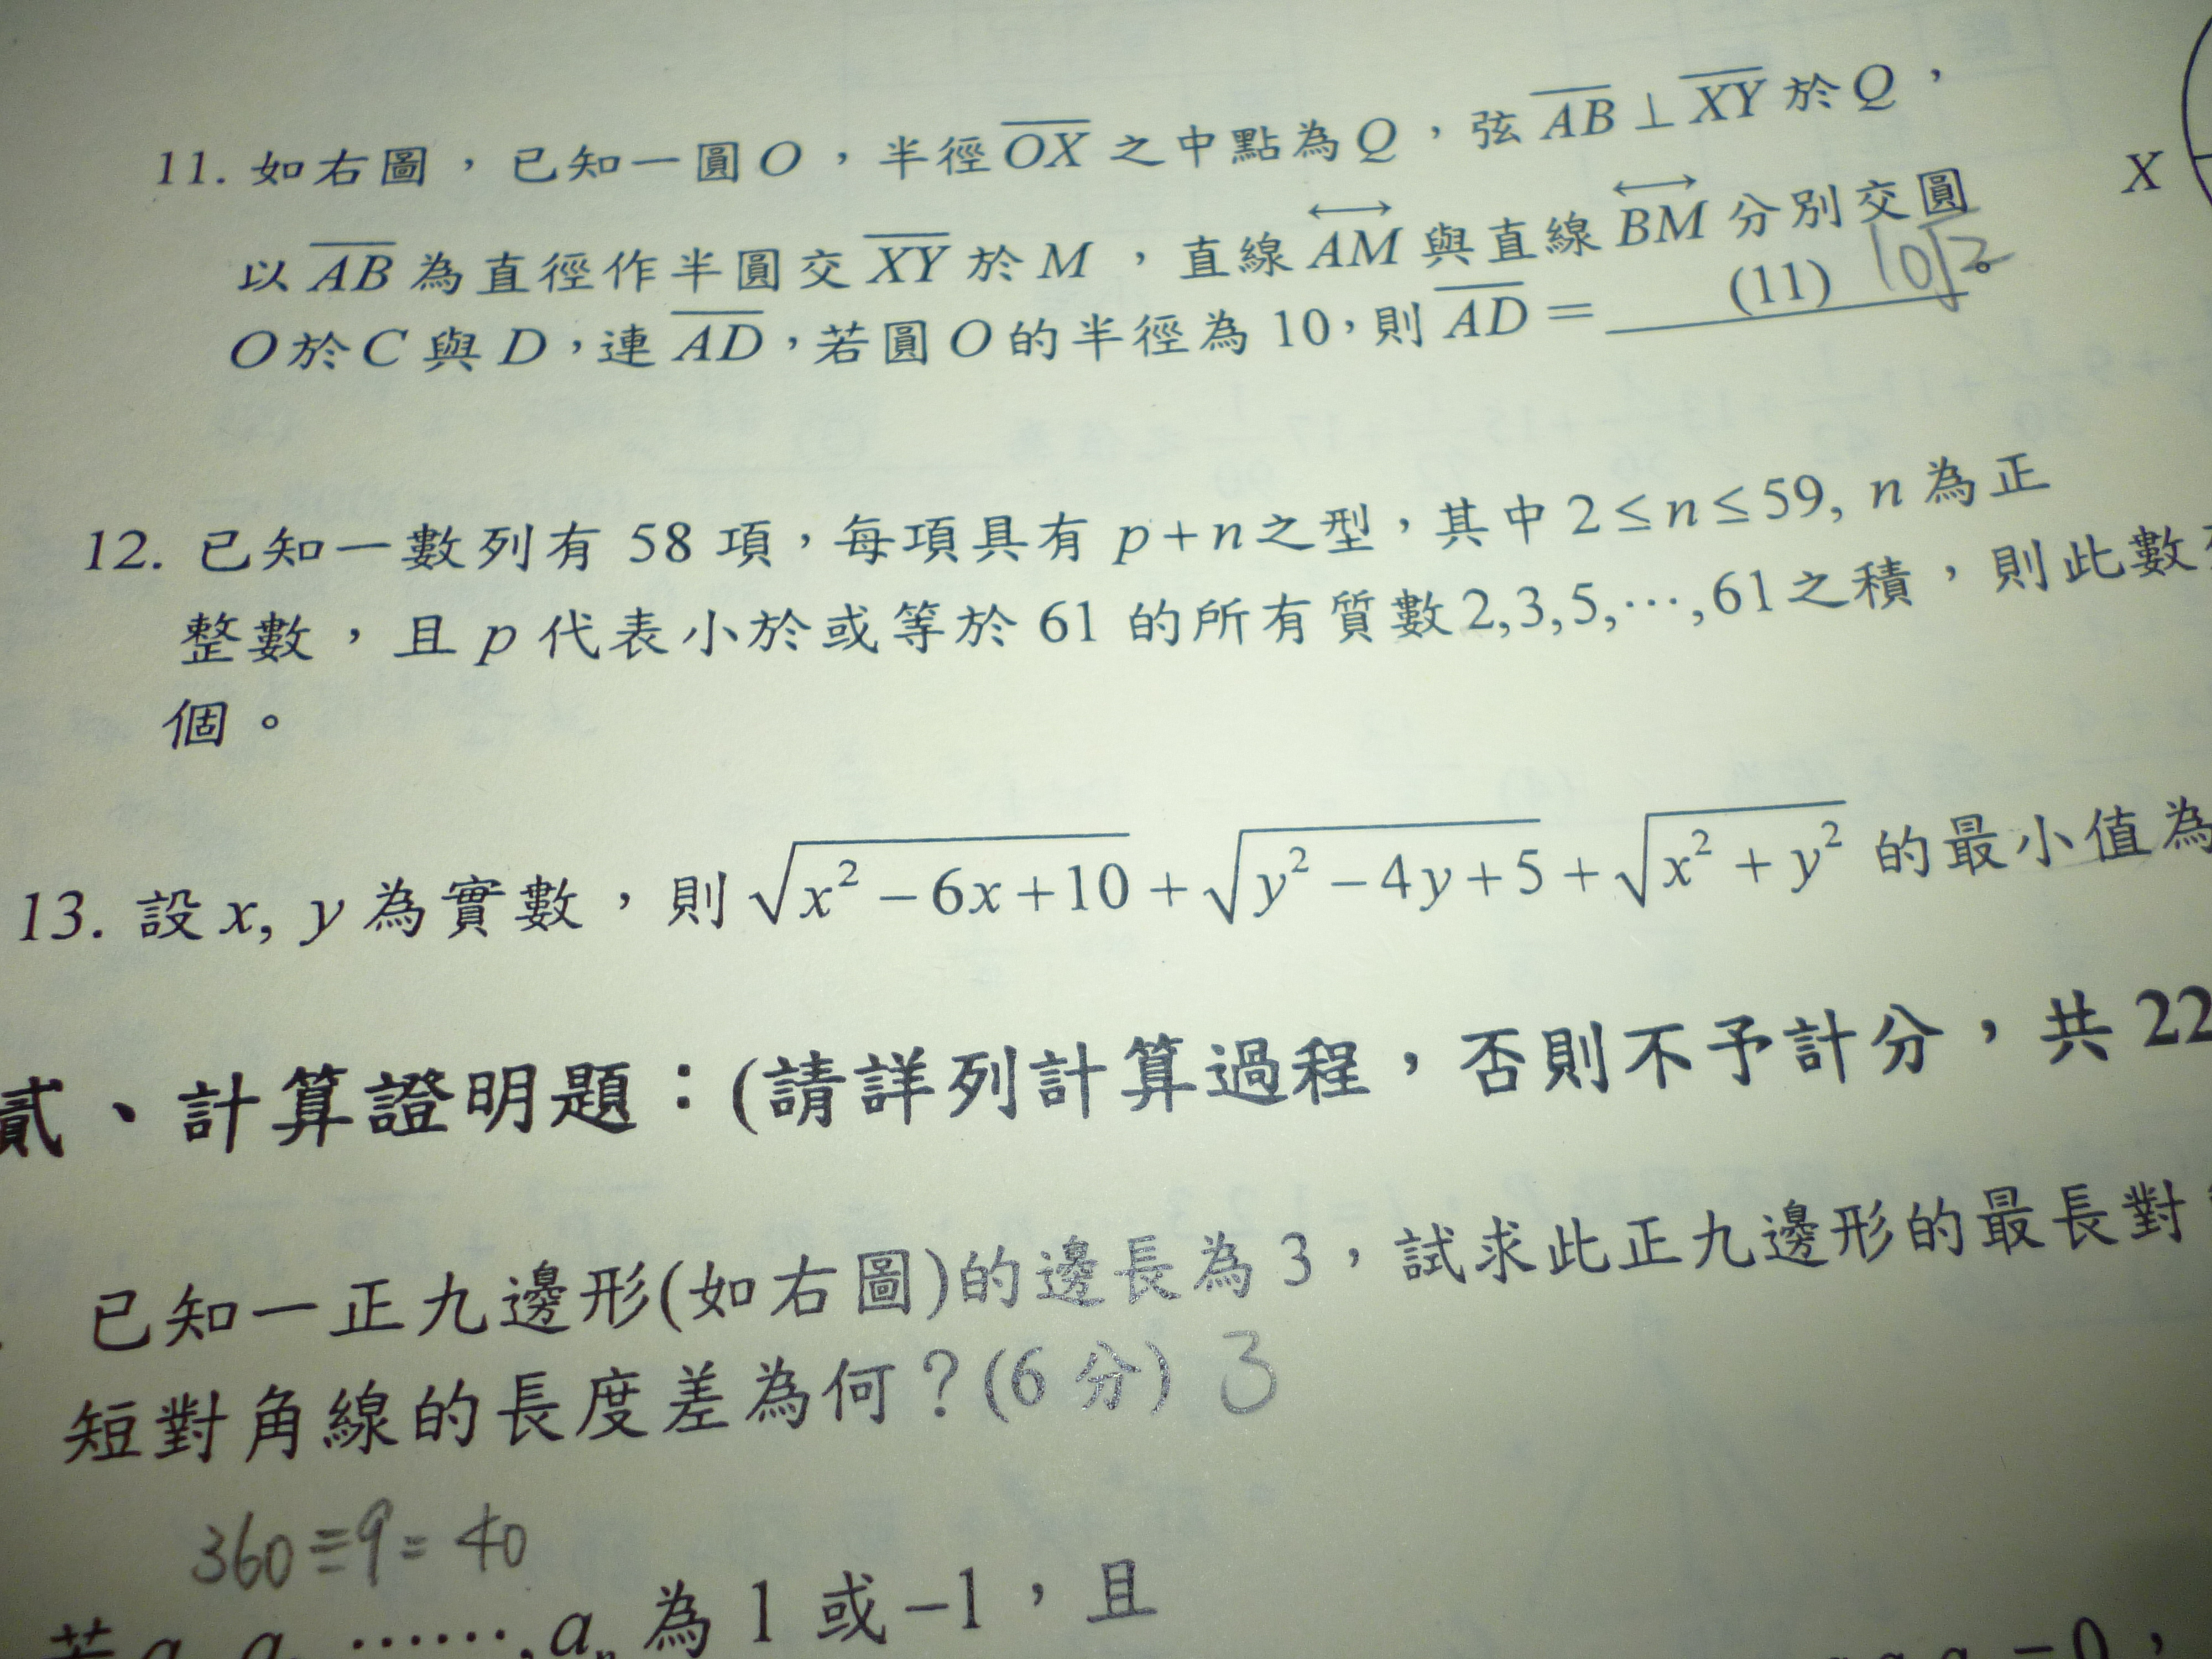 11. 如右圖，已知一圓O，半徑OX之中點為Q，弦AB⊥XY於Q，
X
以AB為直徑作半圓交XY於M，直線AM與直線BM分別交圓
O於C與D，連AD，若圓O的半徑為10，則AD=(11) 10√2。
12. 已知一數列有 58 項，每項具有 p+n之型，其中2≤n≤59, n為正
整數，且p代表小於或等於61的所有質數2,3,5,…,61之積，則此數
個。
13. 設x, y為實數，則√(x²−6x+10)+√(y²−4y+5)+√(x²+y²)的最小值為
貳、計算證明題：(請詳列計算過程，否則不予計分，共22
已知一正九邊形(如右圖)的邊長為3，試求此正九邊形的最長對
短對角線的長度差為何？(6分) 3
360÷9=40
若a a ……,aₙ為1或−1，且
=0，